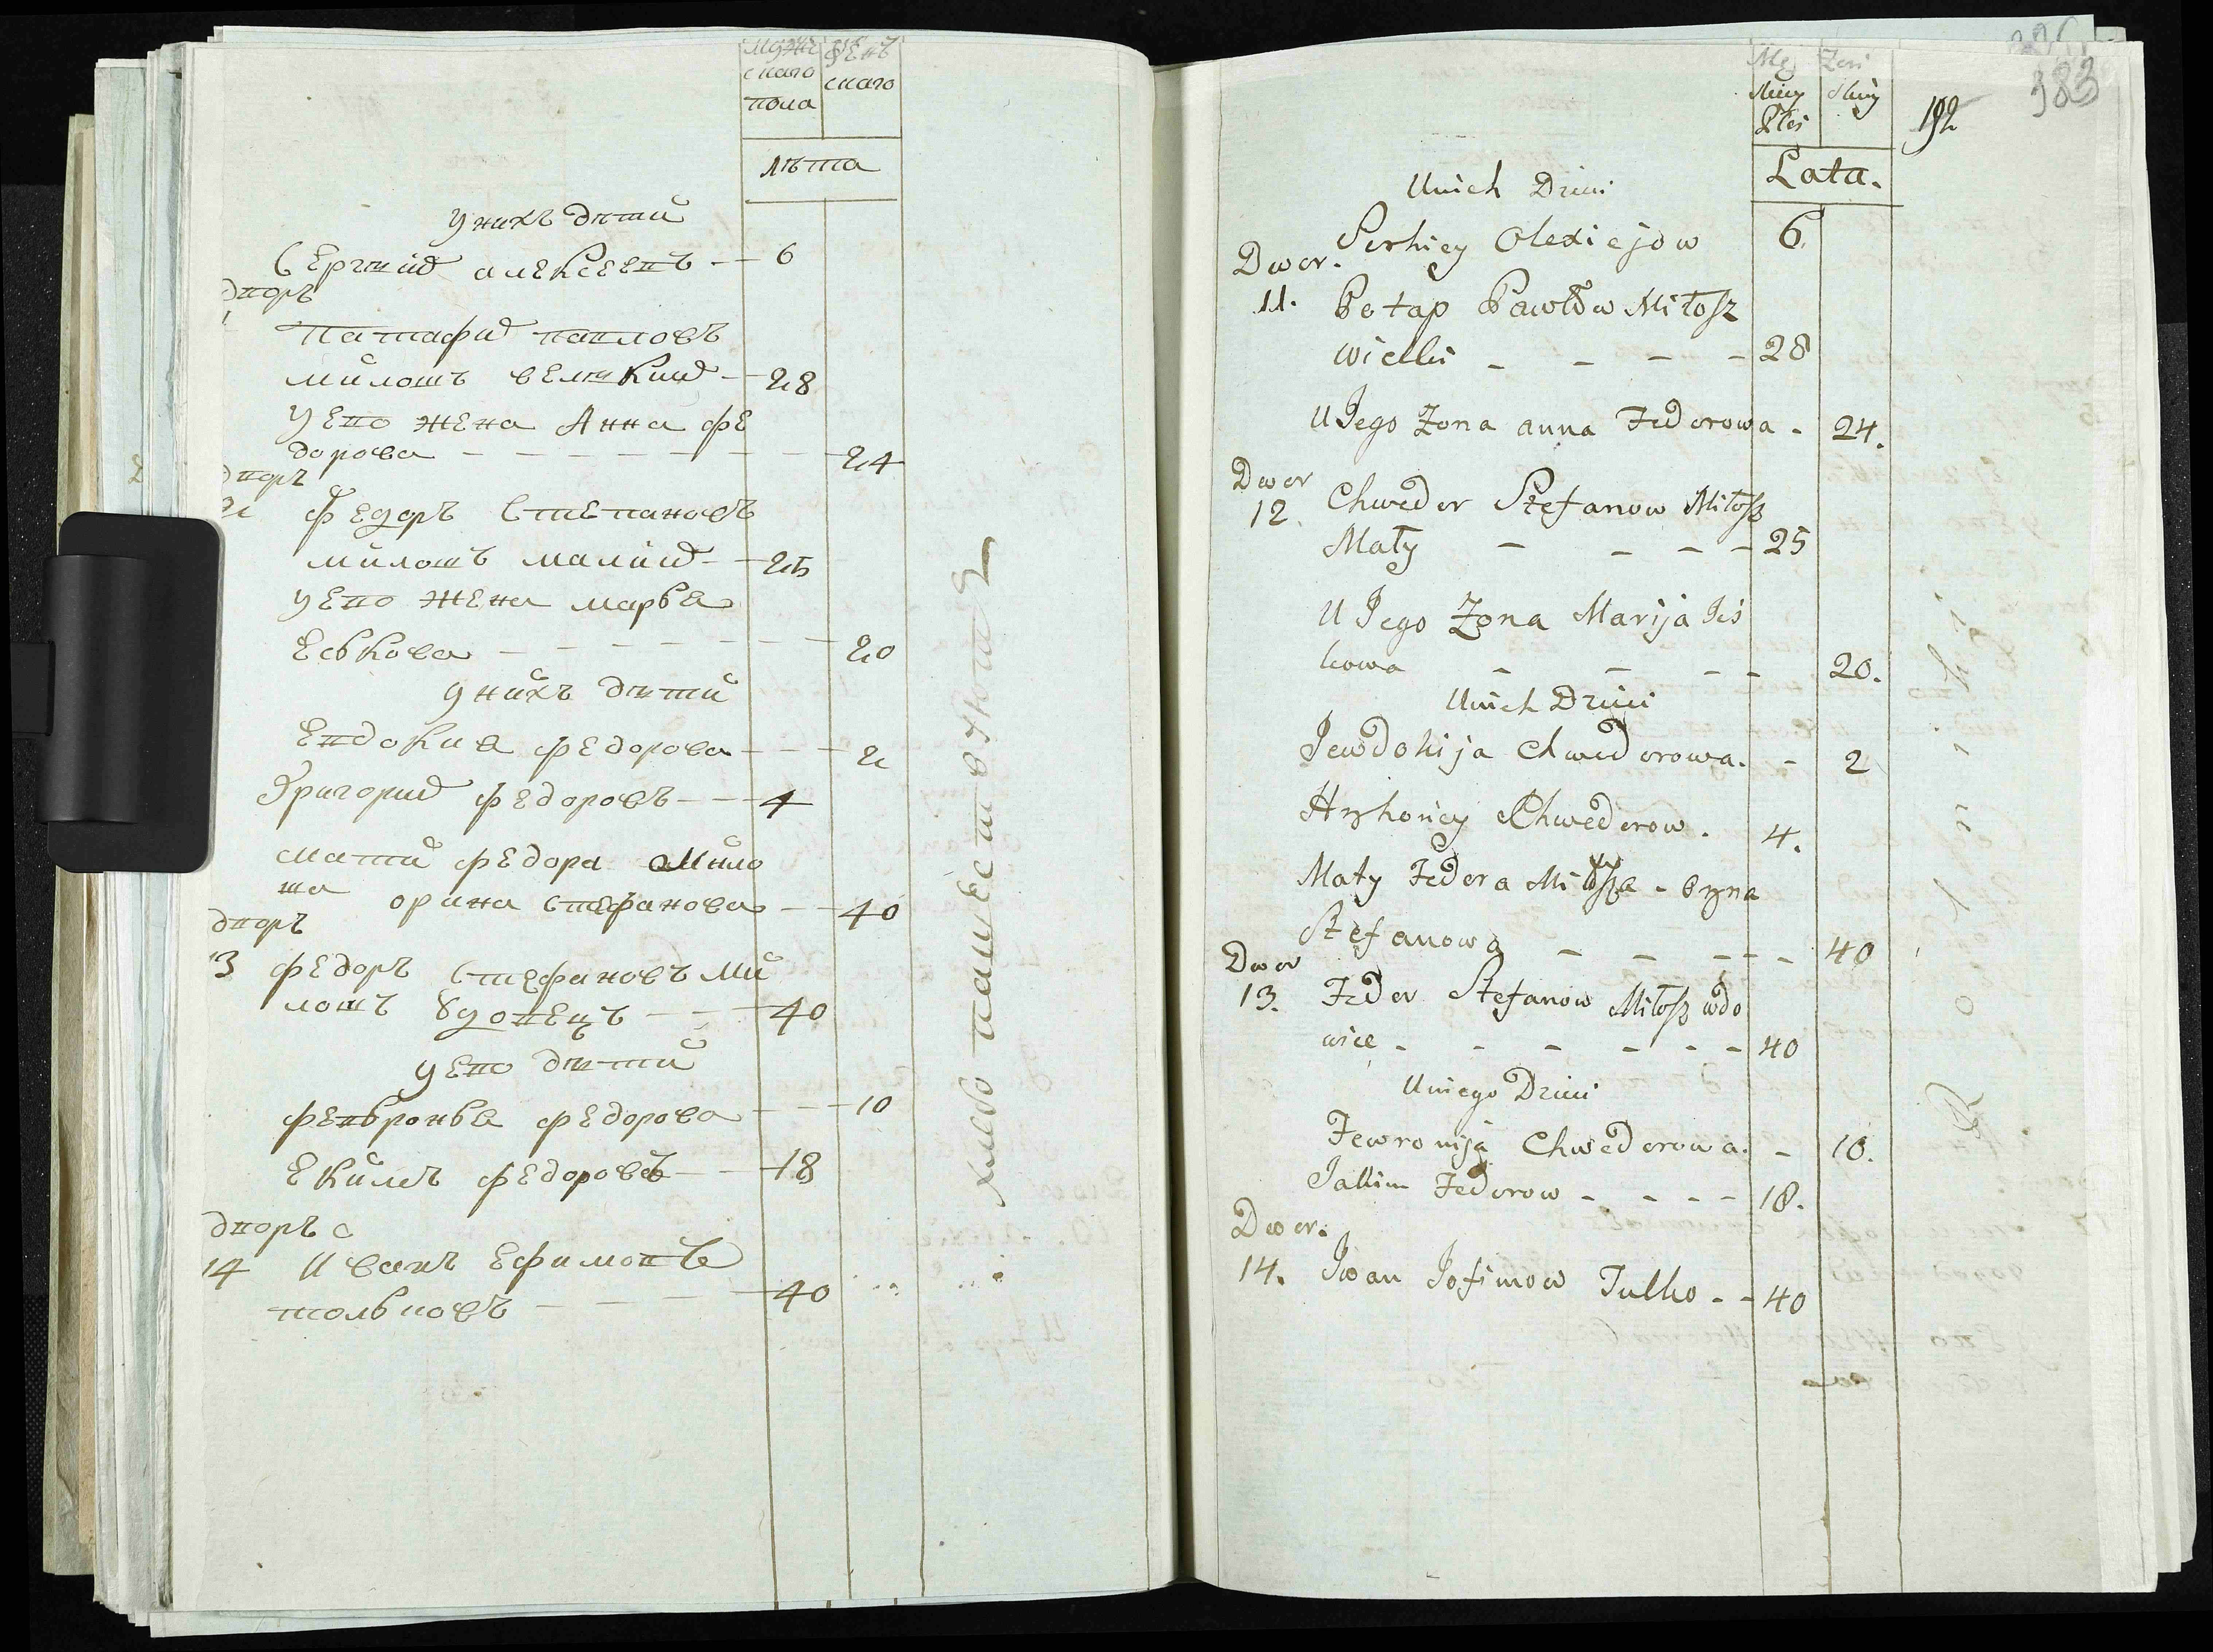 муже женъ
скаго скаго
пола
лѣта
у нихъ дѣтй
Сергѣй алексеевъ - - 6
дворъ
Патафей павловъ
милошъ великий - 28
у ево жена Анна фе
дорова - - - - - - - 24
дворъ
Федоръ Степановъ
милошъ малий - - 25
у ево жена марья
Еськова - - - - - - 20
у нихъ дѣтй
Евдокия федорова - - - 2
Григорий федоровъ - - - 4
мати федора Мило
ша орина стефанова - - 40
дворъ
13 федоръ Стефановъ ми
лошъ вдовецъ - - - 40
у ево дѣтй
февронья федорова - - - 10
Екимъ федоровъ - - 18
дворъ
14 Иванъ Ефимовъ
тольковъ - - - - 40
хлебопашествуютъ
383
192
Męz Zen
skiey skiey
Płci
Lata.
U nich Dzieci
Serhiey Olexiejow 6.
Dwor.
11. Potap Pawłow Miłosz
wielki - - - - 28
U Jego Zona anna Fedorowa - 24.
Dwor
12. Chwedor Stefanow Miłosz
Mały - - - - 25
U Jego Zona Marija Jeś
kowa - - - - 20.
U nich Dzieci
Jewdokija Chwedorowa. - 2
Hryhoriey Chwedorow. 4.
Maty Fedora Miłosza - Oryna
Stefanowa - - - - - 40
Dwor
13. Fedor Stefanow Miłosz wdo
wiec - - - - - - 40
U niego Dzieci
Fewronija Chwedorowa. - 10.
Jakim Fedorow - - - - 18.
Dwor.
14. Iwan Jofimow Tulko - - 40
Rolniki